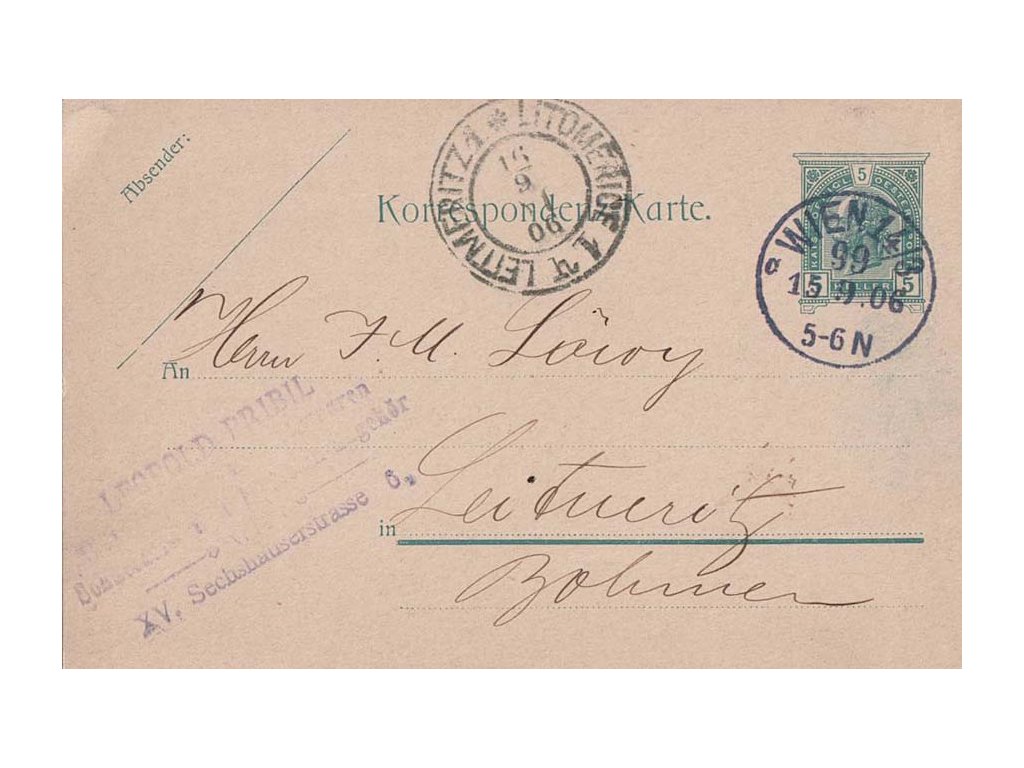 Absender:
LEITMERITZ 1 * LITOMĚŘICE 1
9
06
Korrespondenz-Karte.
5
5 HELLER 5
WIEN
99
a
15.9.06
5-6 N
An Herrn J. M. Löwy
LEOPOLD PRIBIL
XV. Sechshauserstrasse 6.
in Leitmeritz
Böhmen